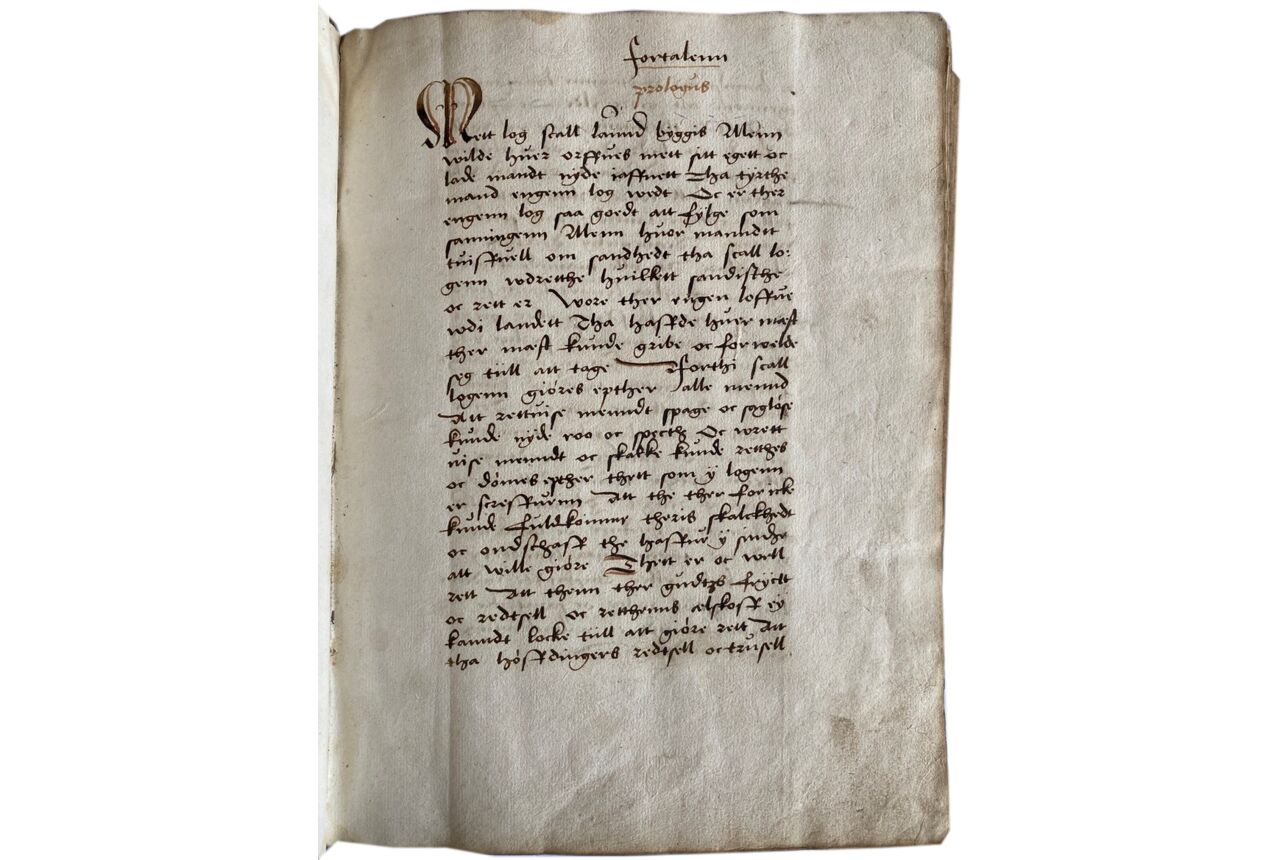 fortalenn
prologus
Mett log scall lannd byggis Menn
wilde huer orffues mett sitt egett oc
lade mandt nyde iaffnett Tha tyrthe
mand engenn log wedt Oc er ther
engenn log saa goedt att fylge som
sanningenn Menn huor manndtt
tuiffuell om sandhedt tha scall lo:
genn wdretthe huilkett sandische
oc rett er Wore ther engen loffue
wdi landett Tha haffde huer mæst
ther mæst kunde gribe oc forwelde
seg till att tage Forthi scall
logenn giöres epther alle mennd
Att rettuise menndt spage oc saglöse
kunde nyde roo oc specth Oc wrett
uise menndt oc skalke kunde retthes
oc dömes epther thett som y logenn
er screffuenn Att the ther for icke
kunde fuldkomme theris skalckhedt
oc ondschaff the haffue y sindhe
att wille giöre Thett er oc well
rett Att thenn ther gudtzs fryctt
oc redtsell oc retthenns elskoff ey
kanndt locke till att giöre rett Att
tha höffdingers redtsell oc trusell